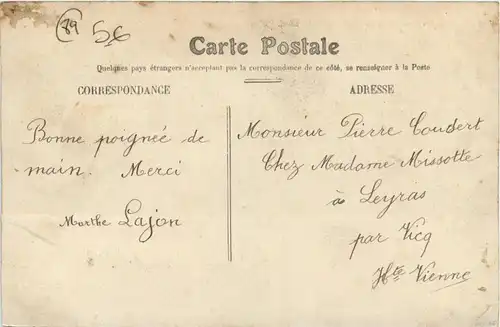 89
56
Carte Postale
Quelques pays étrangers n'acceptant pas la correspondance de ce côté, se renseigner à la Poste
CORRESPONDANCE
Bonne poignée de
main. Merci
Marthe Lajon
ADRESSE
Monsieur Pierre Coudert
Chez Madame Missotte
à Leyras
par Vicq
Hte Vienne